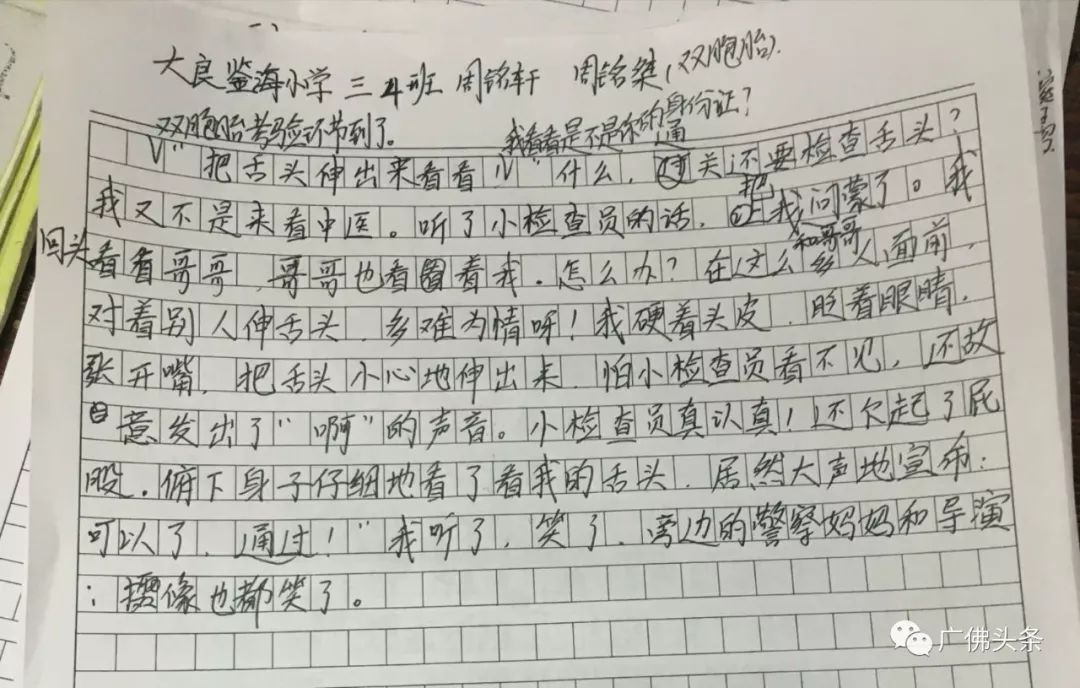 大良鉴海小学 三4班 周铭轩 周铭桀(双胞胎)
双胞胎考验环节到了。 我看看是不是你的身份证?
"把舌头伸出来看看!""什么,通关还要检查舌头?
我又不是来看中医。听了小检查员的话,把我问蒙了。我
回头看看哥哥,哥哥也看着我。怎么办?在这么多人面前,
和哥哥
对着别人伸舌头,多难为情呀!我硬着头皮,眨着眼睛,
张开嘴,把舌头小心地伸出来,怕小检查员看不见,还故
意发出了"啊"的声音。小检查员真认真!还欠起了屁
股,俯下身子仔细地看了看我的舌头,居然大声地宣布:
可以了,通过!"我听了,笑了,旁边的警察妈妈和导演
:摄像也都笑了。
广佛头条